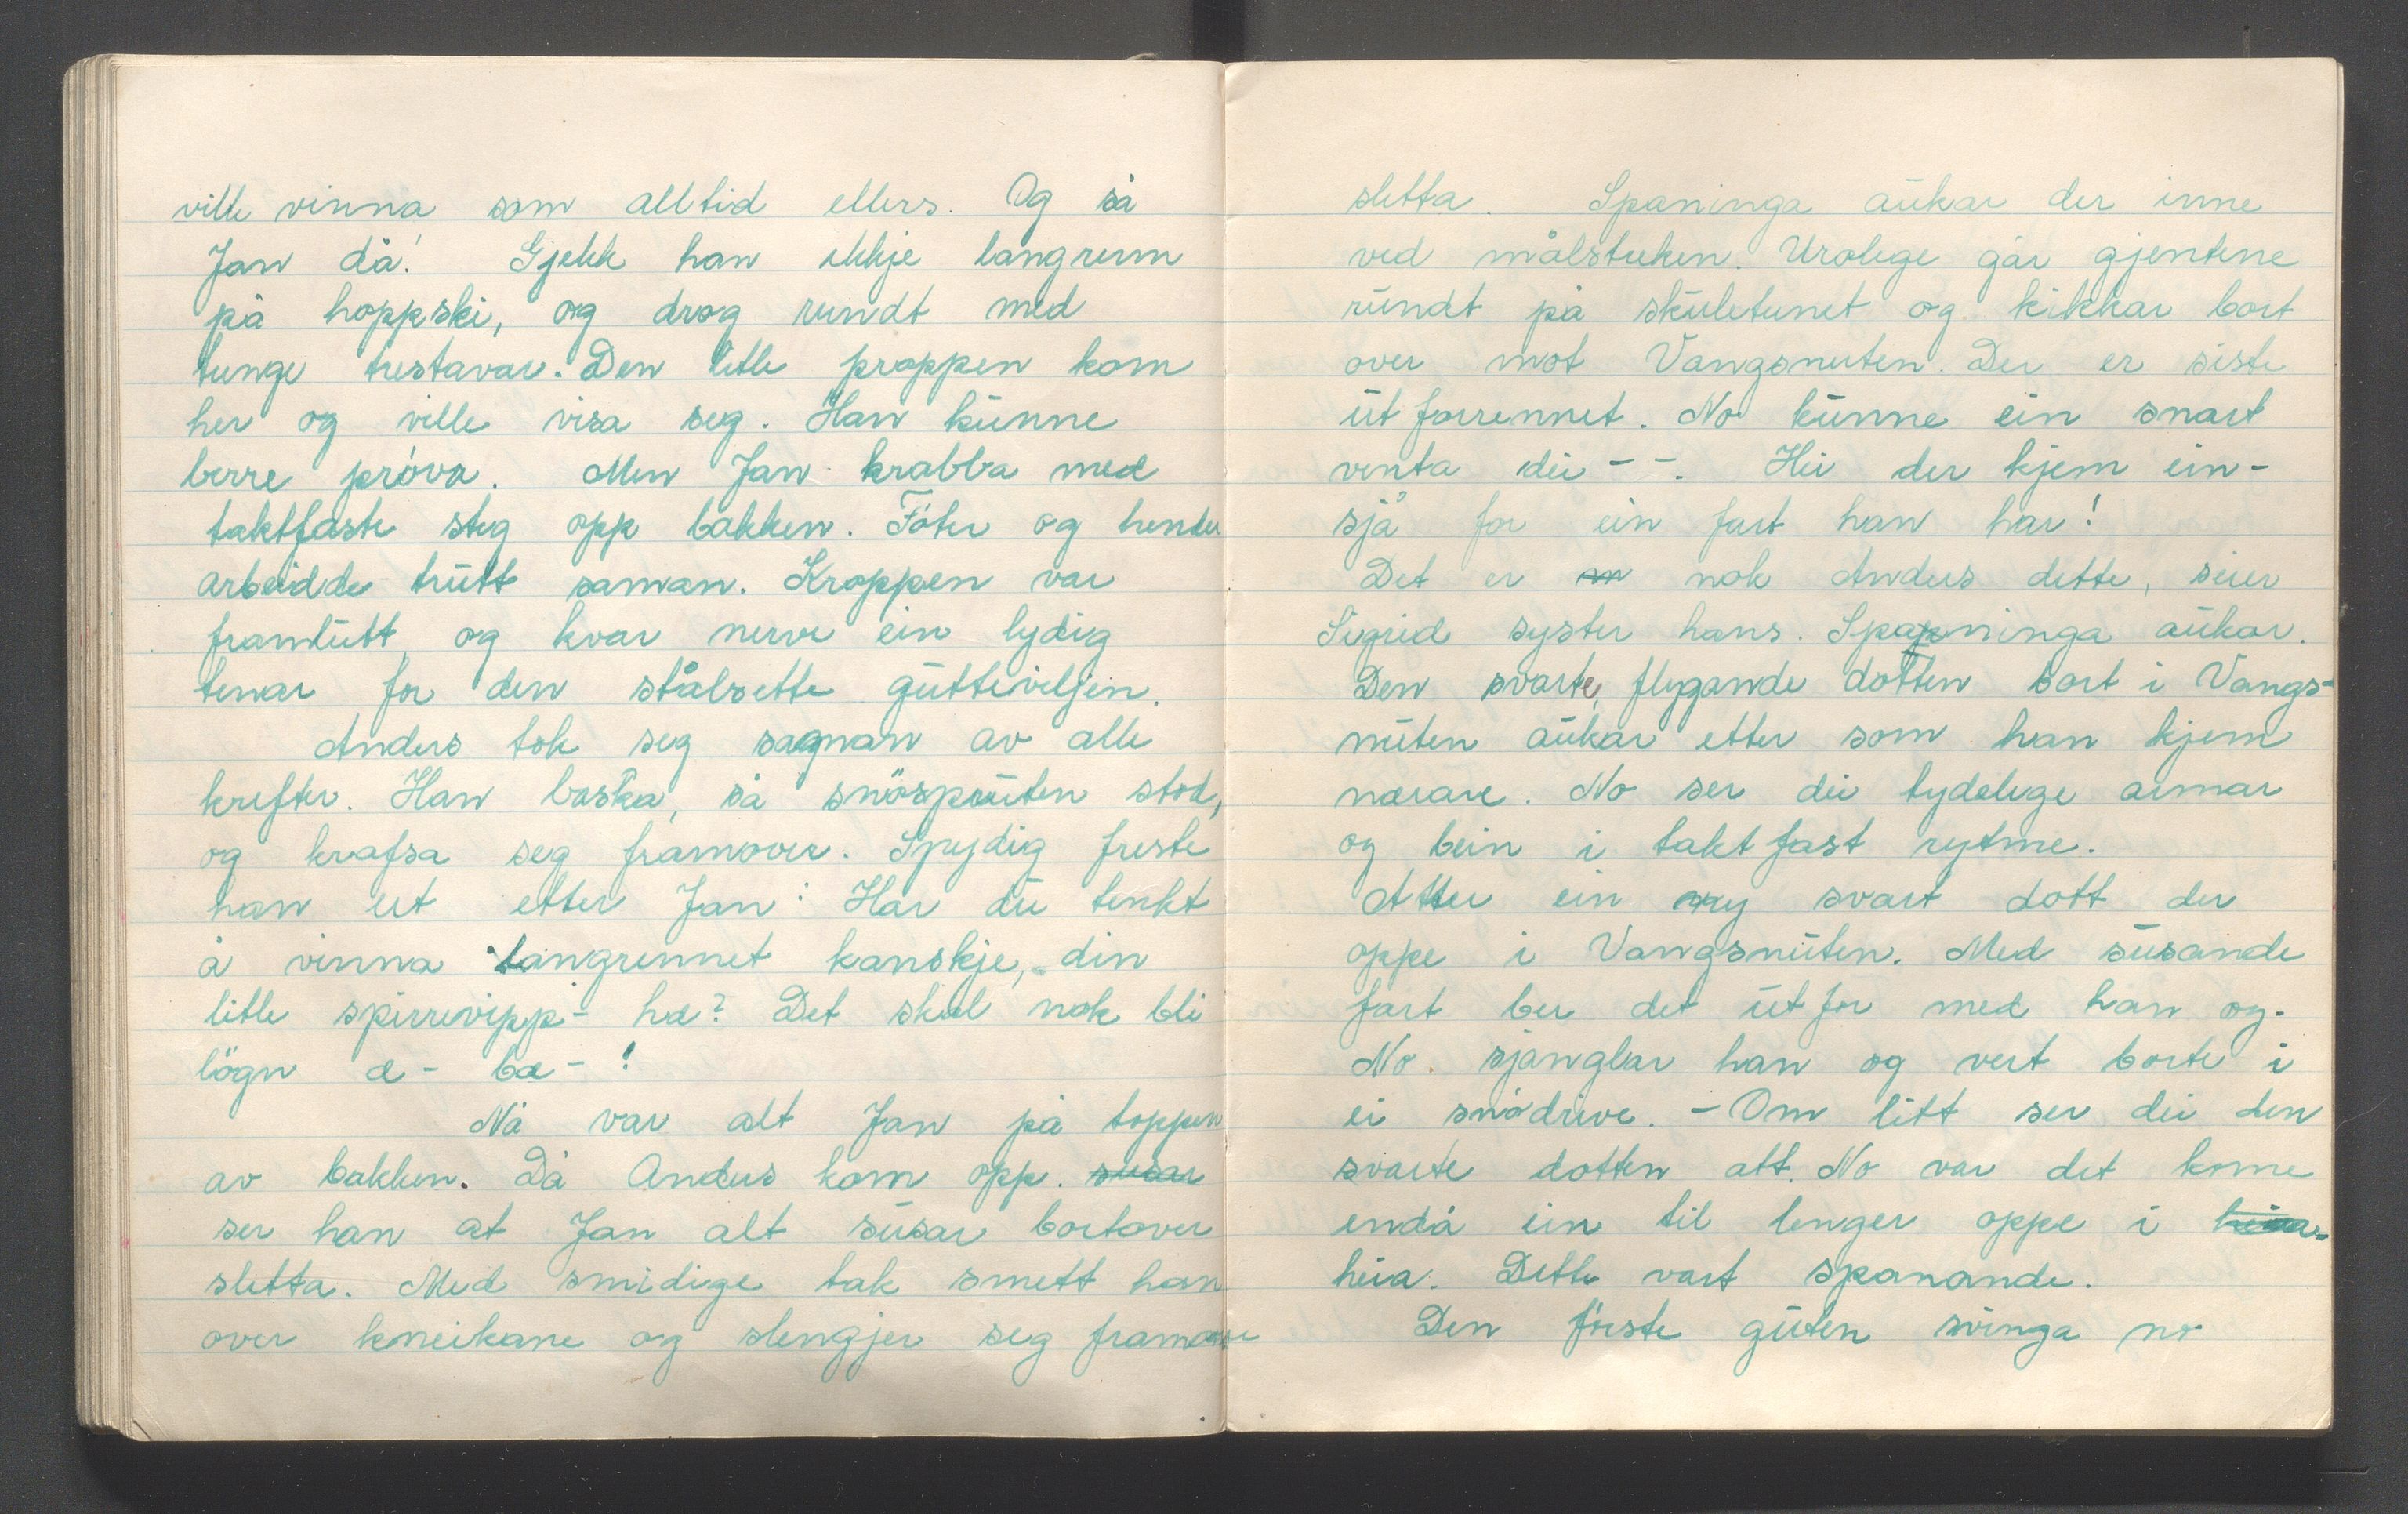 ville vinna som alltid ellers. Og så
Jan då! Gjekk han ikkje langrenn
på hoppski, og drog rundt med
tunge trestavar. Den litle proppen kom
her og ville visa seg. Han kunne
berre pröva. Men Jan krabba med
taktfaste steg opp bakken. Föter og hender
arbeidde trutt saman. Kroppen var
framlutt, og kvar nerve ein lydig
tenar for den stålsette gutteviljen.
Anders tok seg sagman av alle
krefter. Han baska, så snöspruten stod,
og krafsa seg framover. Spydig freste
han ut etter Jan: Har du tenkt
å vinna langrennet kanskje, din
litle spirrevipp - hæ? Det skal nok bli
lögn æ - bæ - !
Nå var alt Jan på toppen
av bakken. Då Anders kom opp. susar
ser han at Jan alt susar bortover
sletta. Med smidige tak smett han
over kneikane og slengjer seg framover
sletta. Spaninga aukar der inne
ved målstreken. Urolege går gjentene
rundt på skuletunet og kikkar bort
over mot Vangsnuten. Der er siste
utforrennet. No kunne ein snart
venta dei - -. Hei der kjem ein -
sjå for ein fart han har!
Det er nok Anders dette, seier
Sigrid syster hans. Spanninga aukar.
Den svarte, flygande dotten bort i Vangs-
nuten aukar etter som han kjem
nærare. No ser dei tydelege armar
og bein i taktfast rytme.
Atter ein ny svart dott der
oppe i Vangsnuten. Med susande
fart ber det utfor med han og.
No sjanglar han og vert borte i
ei snödrive. - Om litt ser dei den
svarte dotten att. No var det kome
endå ein til lenger oppe i heia.
heia. Dette vart spanande.
Den förste guten svinga no